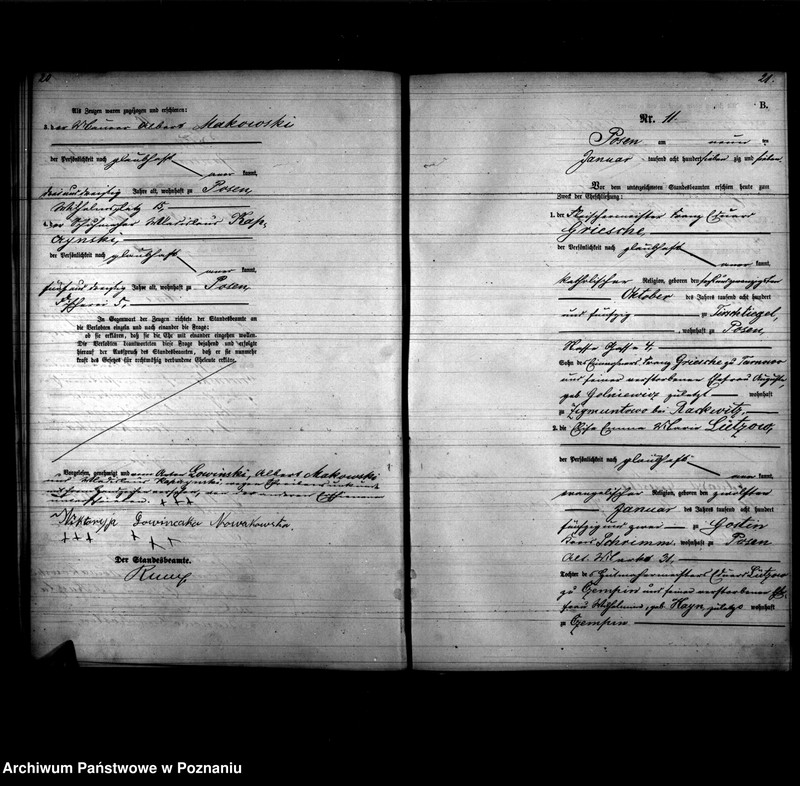 20
Als Zeugen waren zugezogen und erschienen:
3. der Maurer Albert Makowski
der Persönlichkeit nach glaubhaft
aner kannt,
drei und dreißig Jahre alt, wohnhaft zu Posen,
Wilhelmsplatz
4. der Schuhmacher Wladislaus Kap-
czynski,
der Persönlichkeit nach glaubhaft
aner kannt,
fünf und dreißig Jahre alt, wohnhaft zu Posen,
Fischerei 5.
In Gegenwart der Zeugen richtete der Standesbeamte an
die Verlobten einzeln und nach einander die Frage:
ob sie erklären, daß sie die Ehe mit einander eingehen wollen.
Die Verlobten beantworteten diese Frage bejahend und erfolgte
hierauf der Ausspruch des Standesbeamten, daß er sie nunmehr
kraft des Gesetzes für rechtmäßig verbundene Eheleute erkläre.
Vorgelesen, genehmigt und vom Lowinski, Albert Makowski
und Wladislaus wegen
von der anderen
+++
Wiktoryja Lowincaka Nowakowska.
+++ + ++
Der Standesbeamte.
21.
B.
Nr. 11.
Posen am neun ten
Januar tausend acht hundert sieben zig und sieben
Vor dem unterzeichneten Standesbeamten erschienen heute zum
Zweck der Eheschließung:
1. der Fleischermeister Franz Eduard
Griesche,
der Persönlichkeit nach glaubhaft
aner kannt,
katholischer Religion, geboren den
Oktober des Jahres tausend acht hundert
und fünfzig zu Tirschtiegel,
, wohnhaft zu Posen,
Nasse Gasse 4.
Sohn des Franz Griesche zu
und seiner verstorbenen Ehefrau Auguste
geb. Golniewicz zuletzt wohnhaft
zu Zygmuntowo bei Rackwitz.
2. die Elise Emma Marie Lützow,
der Persönlichkeit nach glaubhaft
aner kannt,
evangelischer Religion, geboren den zwölften
Januar des Jahres tausend acht hundert
fünfzig und zwei zu Gostin
Kreis Schrimm, wohnhaft zu Posen
Alt. Markt 31,
Tochter des Eduard Lützow
zu Czempin und seiner verstorbenen Ehe-
frau Wilhelmine, geb. Hayn zuletzt wohnhaft
zu Czempin
Archiwum Państwowe w Poznaniu